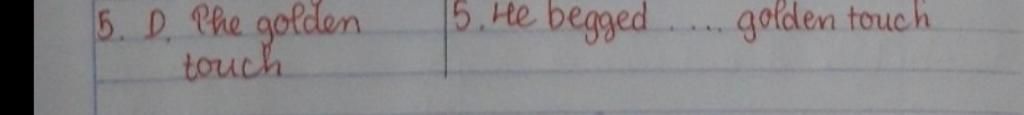 5. D. The golden
touch
5. He begged .... golden touch